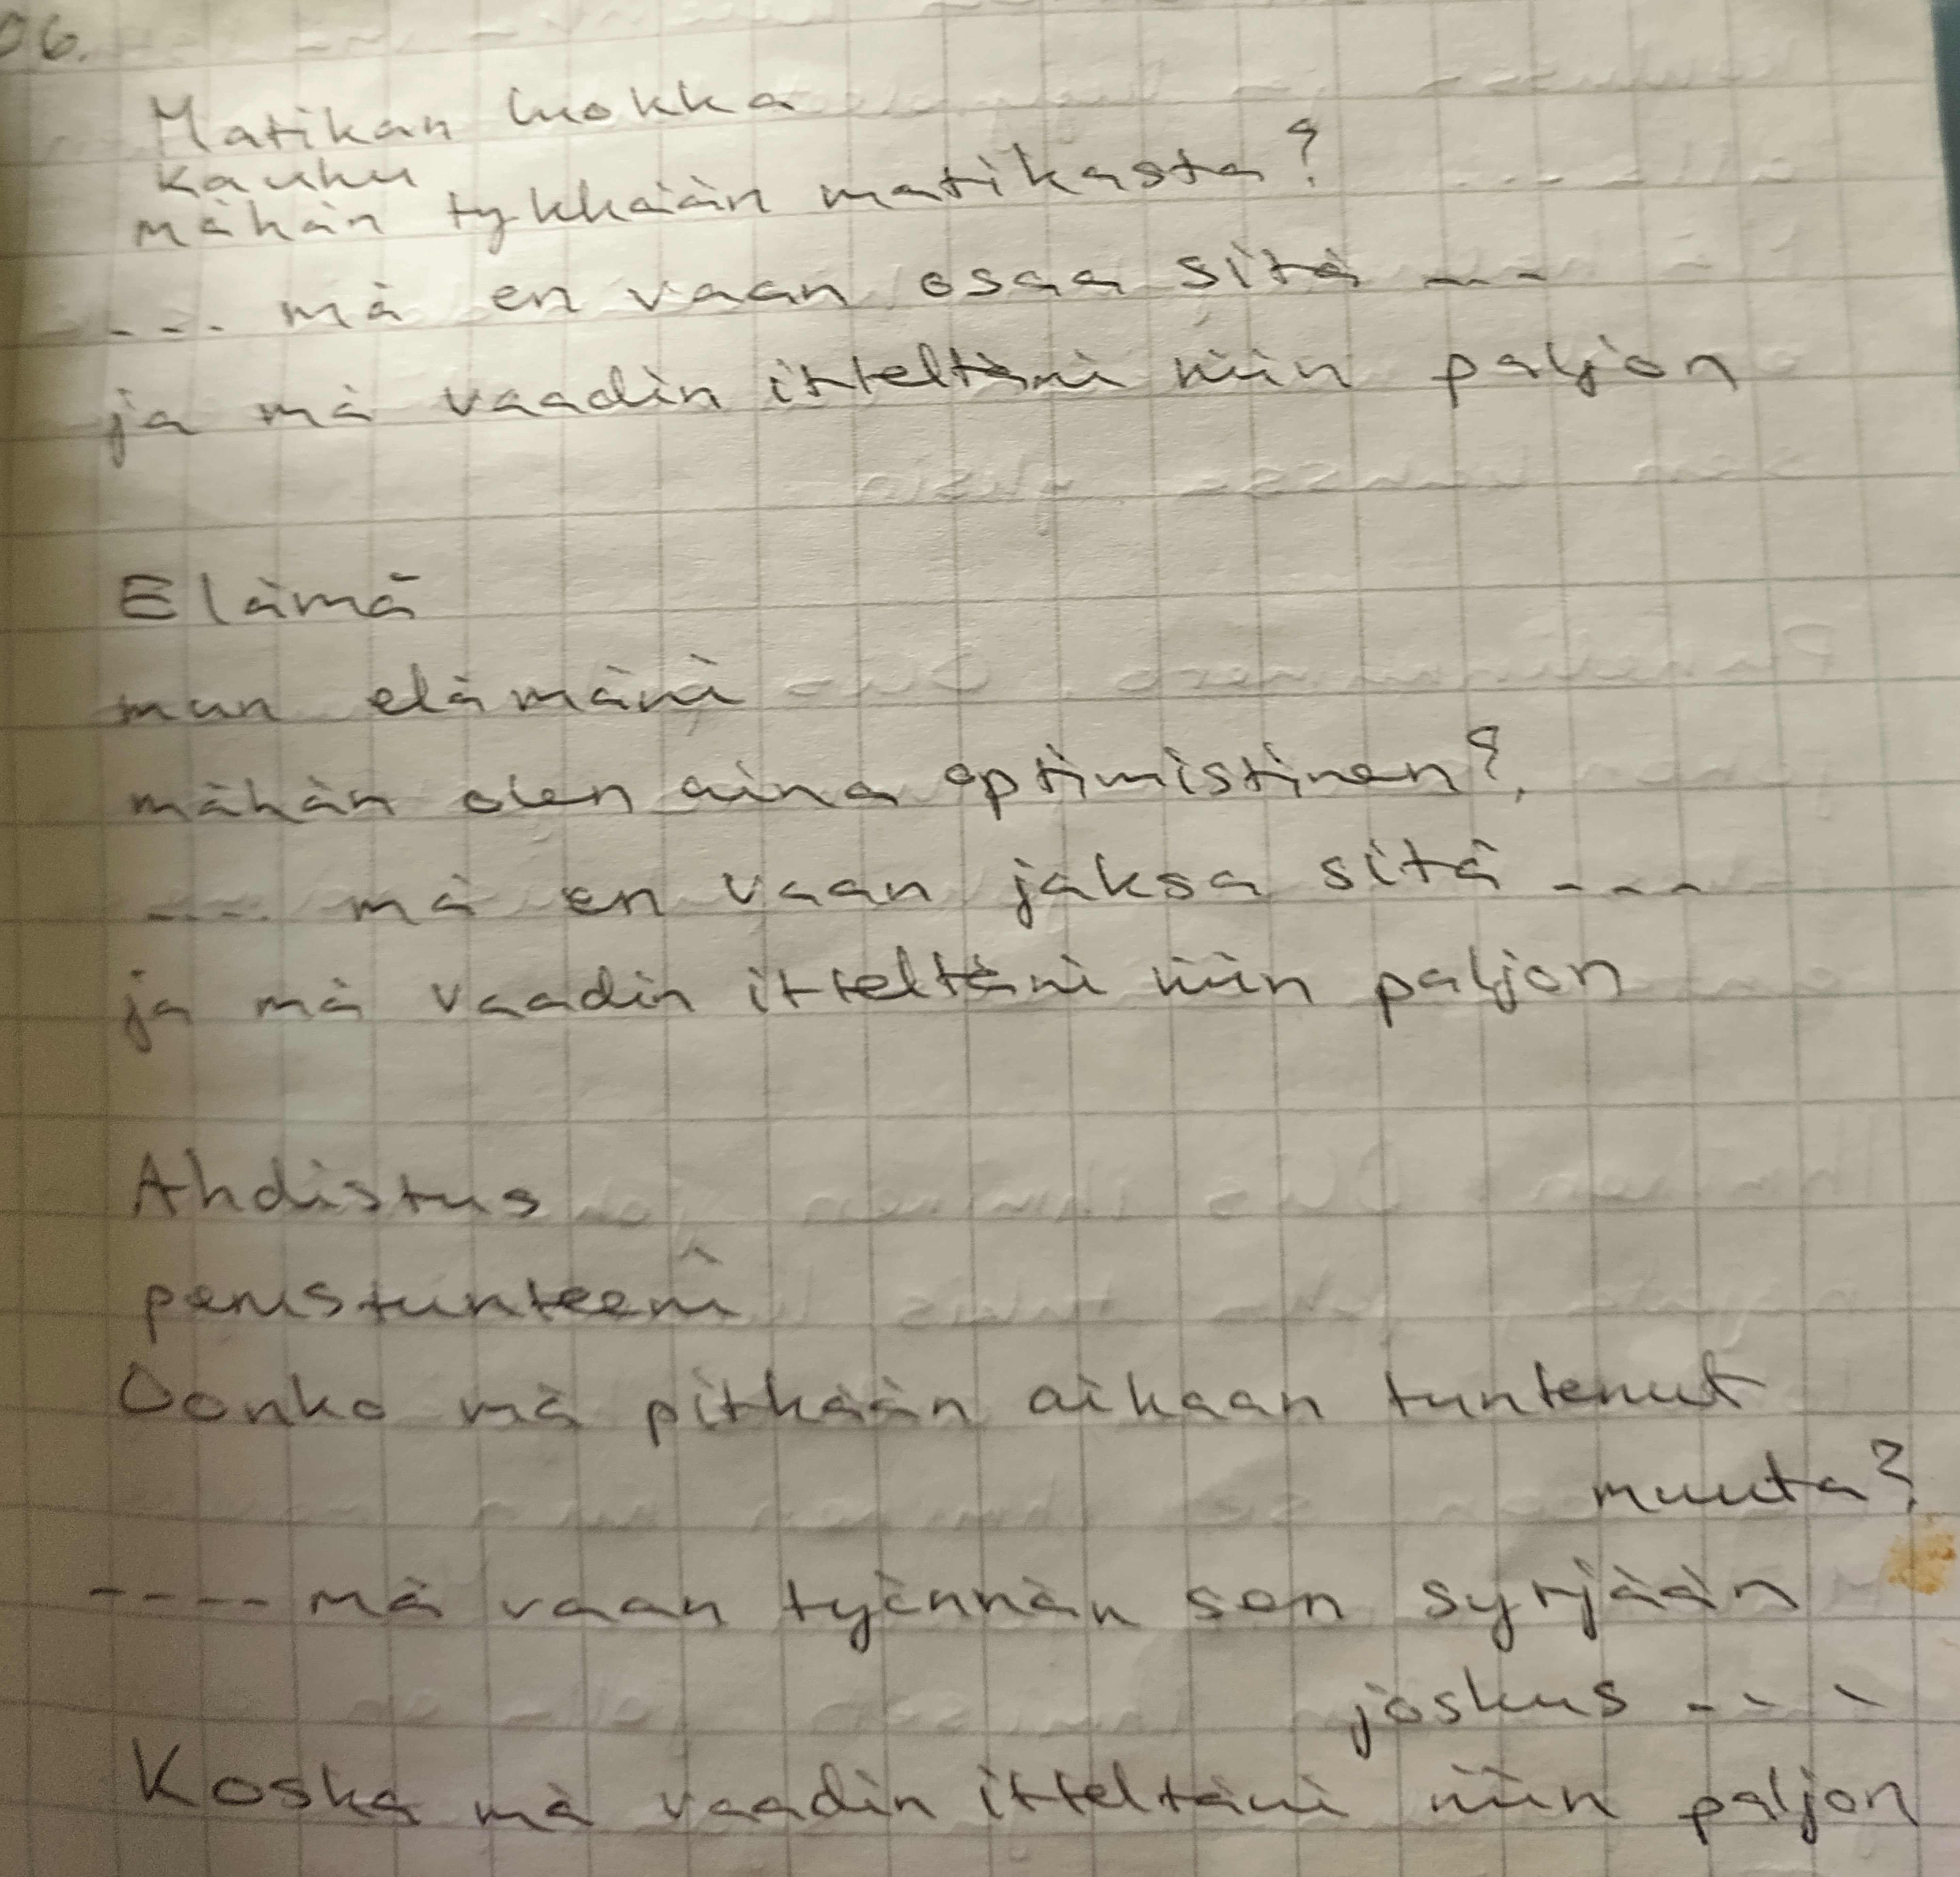 06.
Matikan luokka
Kauhu
mähän tykkään matikasta?
... mä en vaan osaa sitä ---
ja mä vaadin itteltäni niin paljon
Elämä
mun elämäni
mähän olen aina optimistinen?
.... mä en vaan jaksa sitä ---
ja mä vaadin itteltäni niin paljon
Ahdistus
perustunteeni
Oonko mä pitkään aikaan tuntenut
muuta?
---- mä vaan työnnän sen syrjään
joskus ...
Koska mä vaadin itteltäni niin paljon